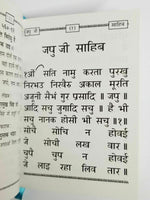 जपु जी
(1)
साहिब
जपु जी साहिब
१ओं सति नामु करता पुरखु
निरभउ निरवैरु अकाल मूरति
अजूनी सैभं गुर प्रसादि ॥ जपु ॥
आदि सचु जुगादि सचु ॥ है भी
सचु नानक होसी भी सचु ॥१॥
सोचै सोचि न होवई
जे सोची लख वार ॥
चुपै चुप न होवई
जे लाइ रहा लिव तार ॥